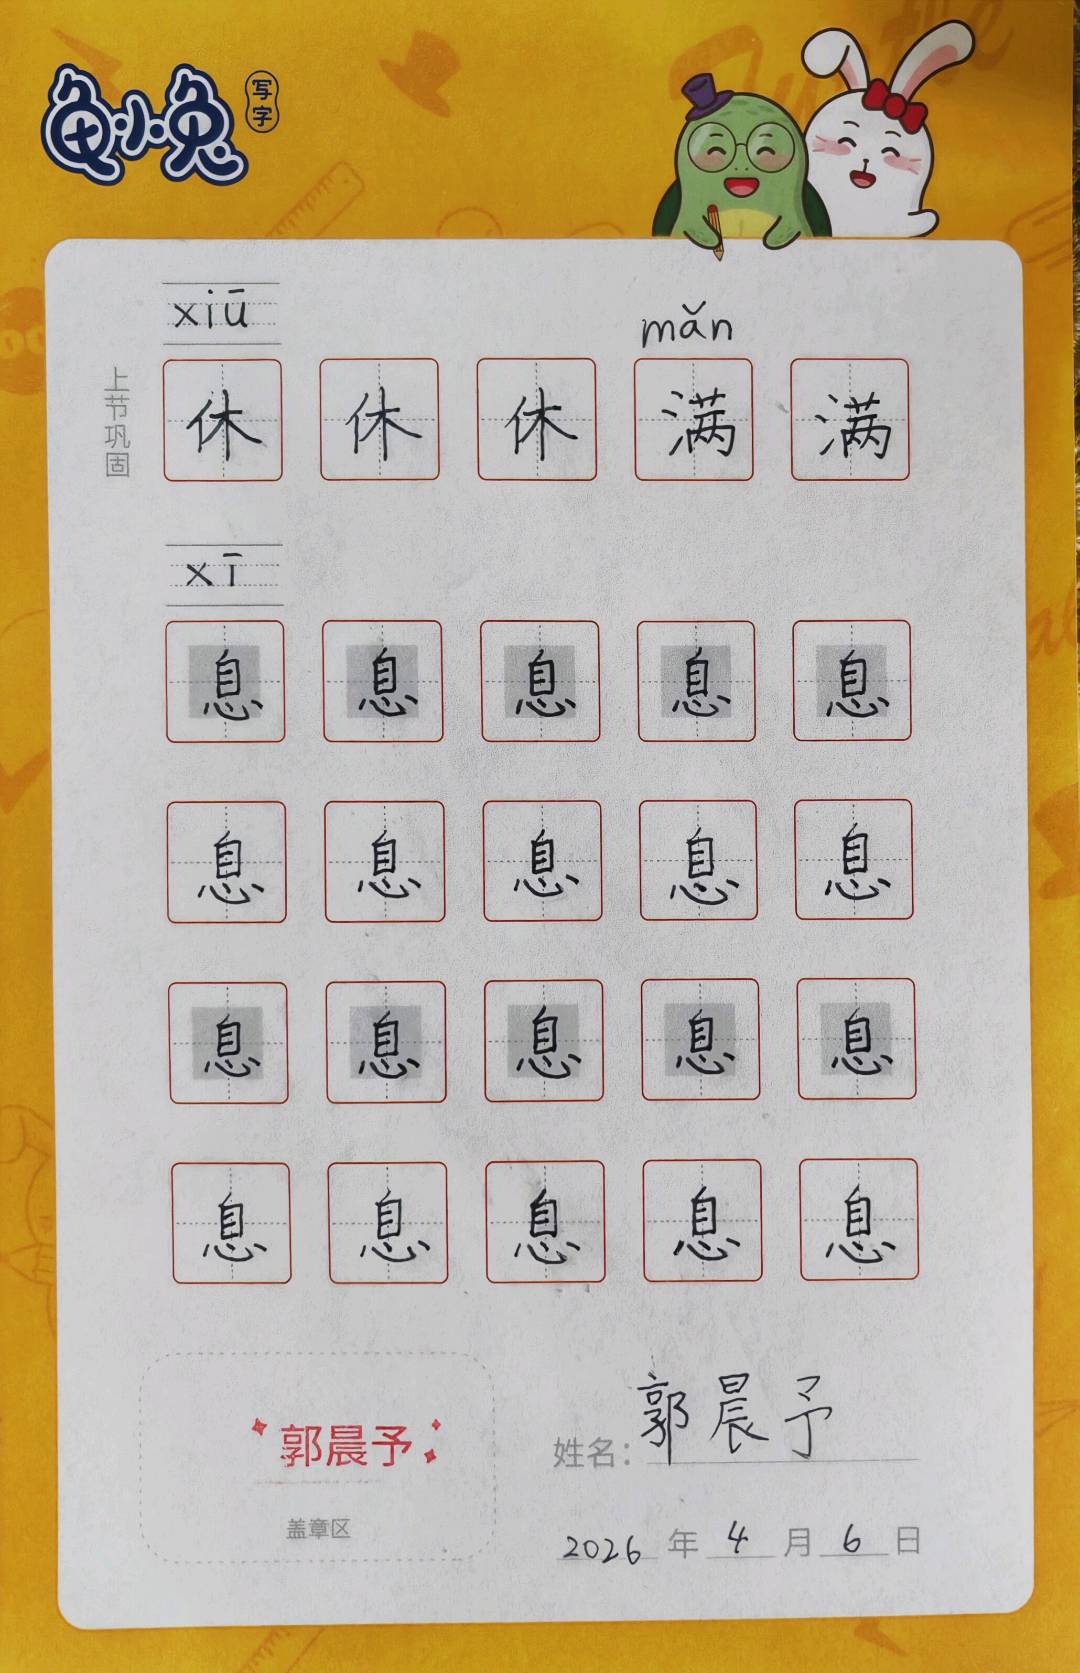 龟小兔 写字
xiū mǎn
上节巩固
休 休 休 满 满
xī
息 息 息 息 息
息 息 息 息 息
息 息 息 息 息
息 息 息 息 息
郭晨予
盖章区
姓名：郭晨予
2026年4月6日